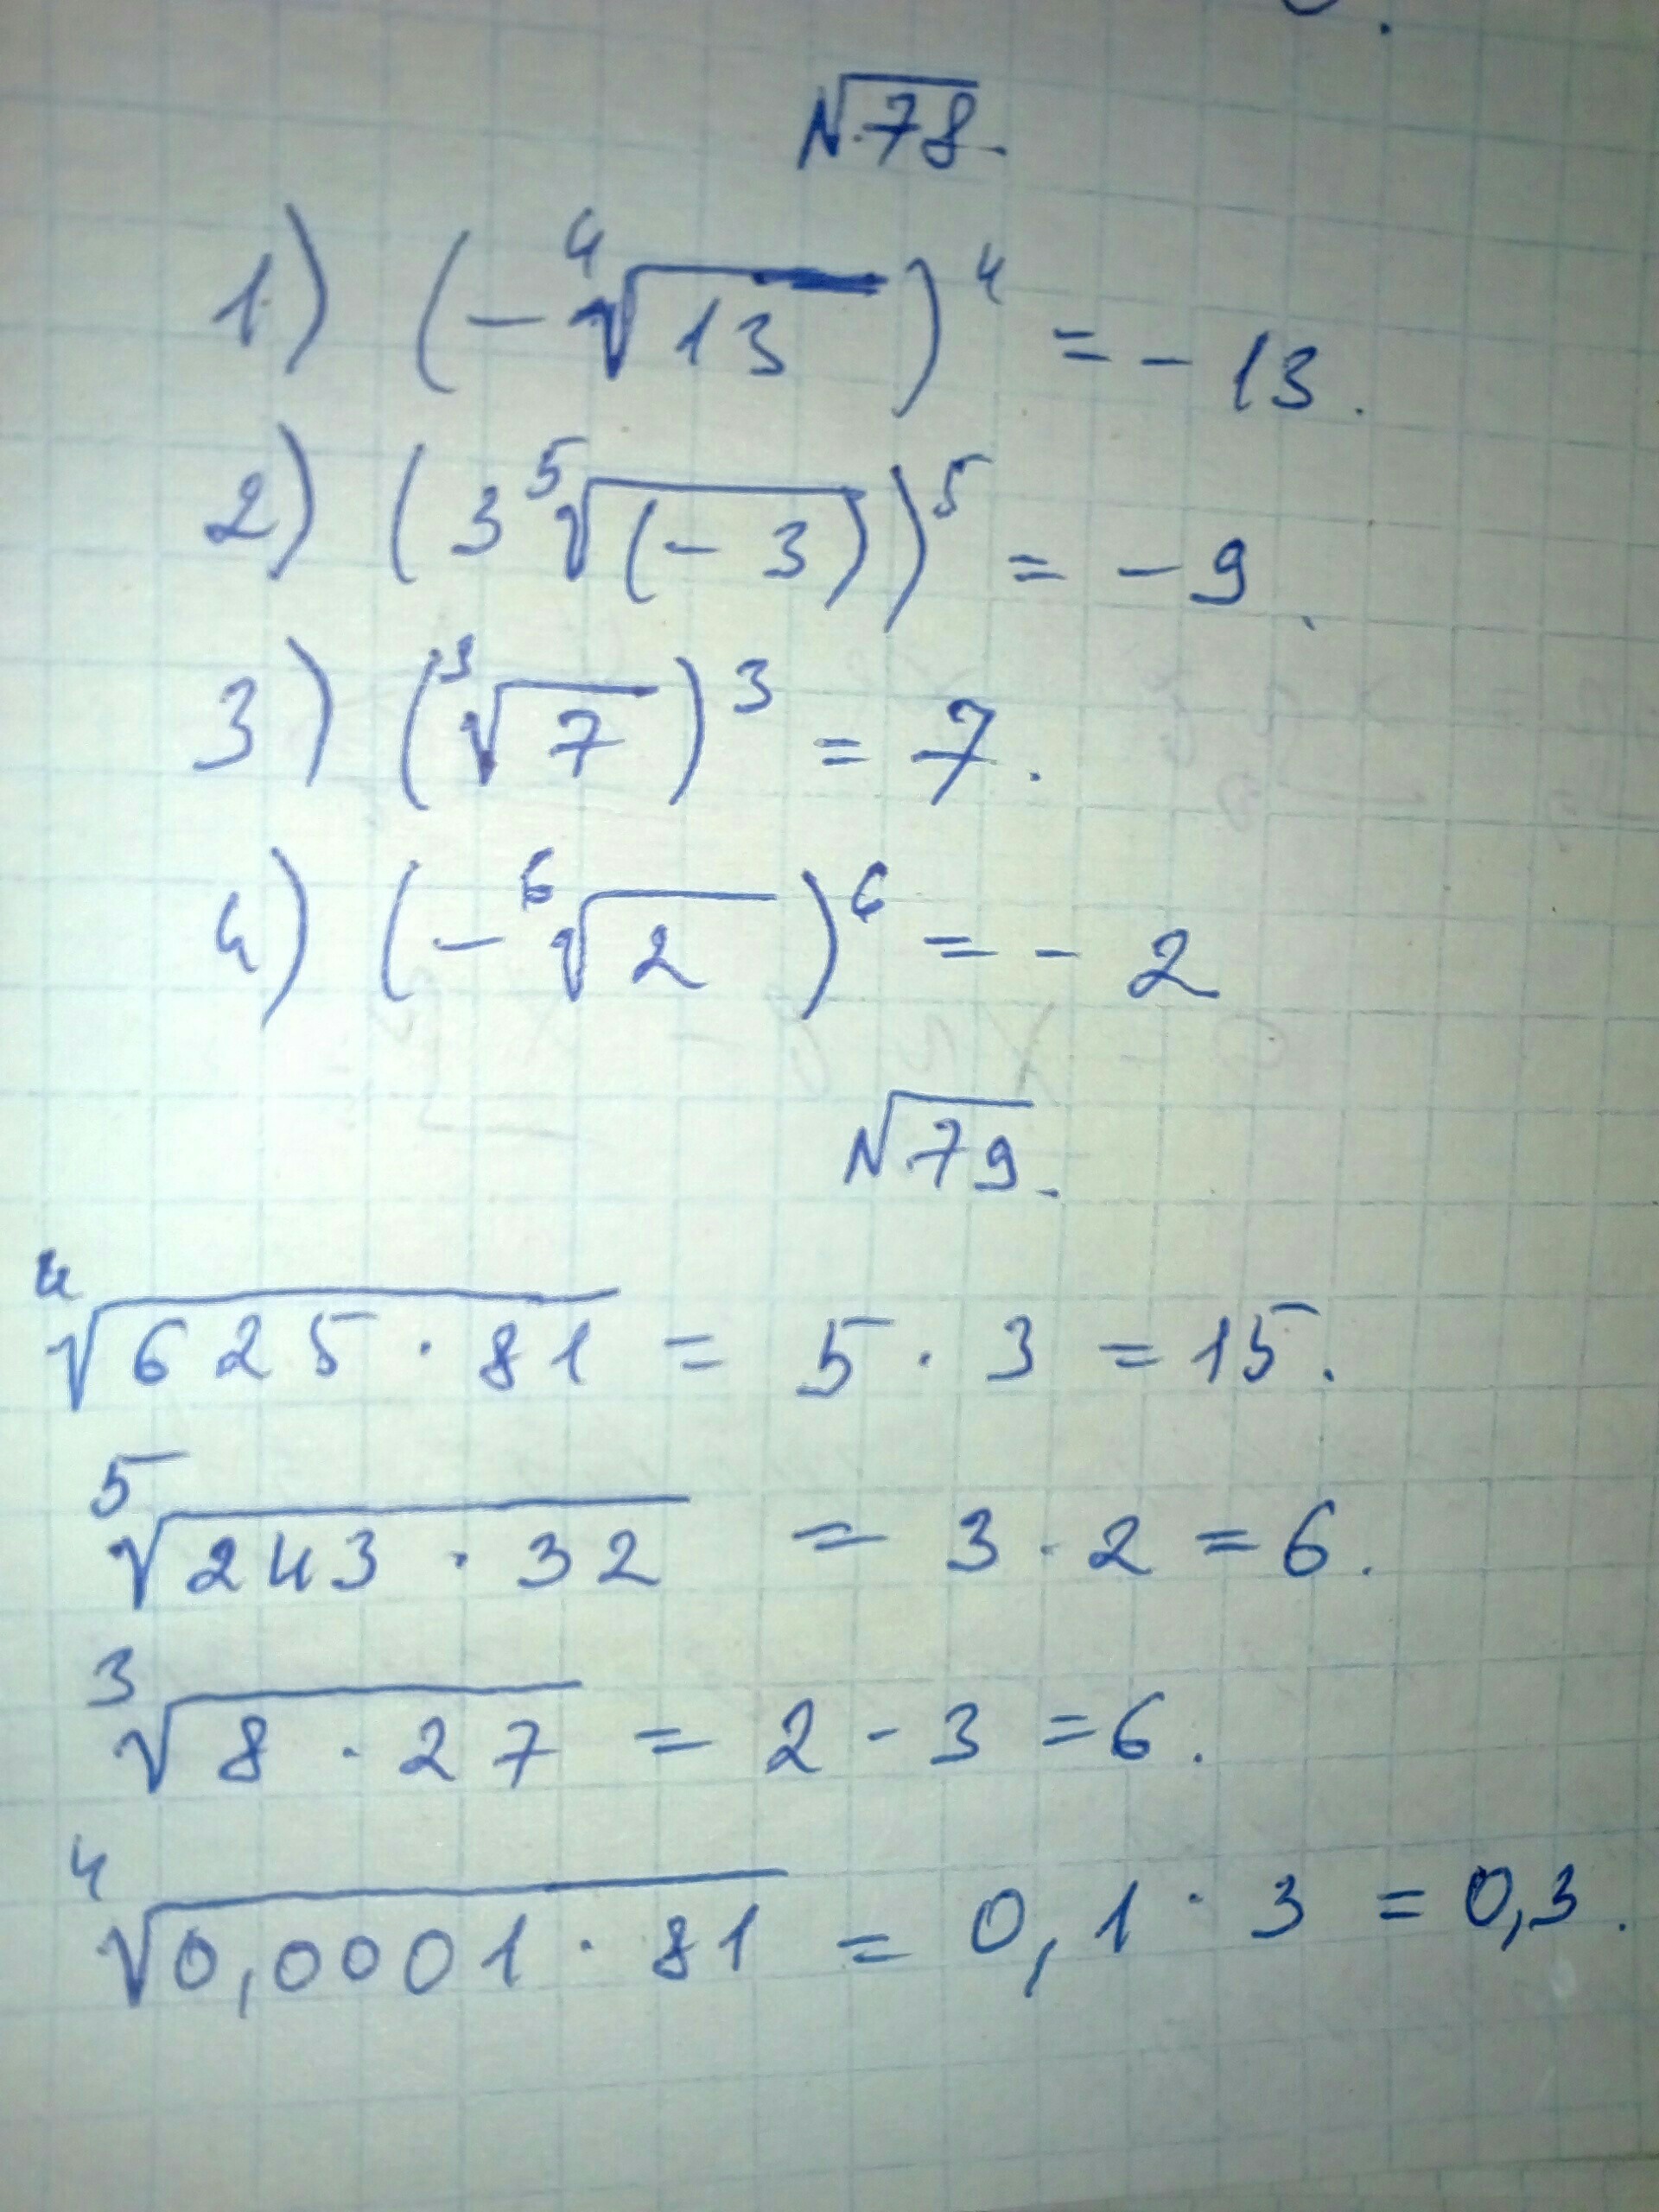 №78.
1) (-⁴√13)⁴ = -13.
2) (3⁵√(-3))⁵ = -9.
3) (³√7)³ = 7.
4) (-⁶√2)⁶ = -2
№79.
⁴√625·81 = 5·3 = 15.
⁵√243·32 = 3·2 = 6.
³√8·27 = 2-3 = 6.
⁴√0,0001·81 = 0,1·3 = 0,3.